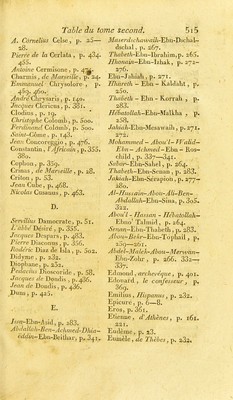 Table du tome second. 515
A. Cornelius Celse, p. 25—
28.
Pierre de la Cerlata, p. 434.
455.
Antoine Cermisone, p.
Charmis, de Marseille, p. 24.
Emmanuel Chrysolore, p.
459. 460.
André Chrysaris, p. 140.
Jacques Claricus, p. 381.
Clodius, p. 19.
Christophe Colomb, p. 500.
Ferdinand Colomb, p. 500.
Saint-Côme, p. 143.
Jean Concorreggio, p. 476.
Constantin, l'Africain, p. 353.
380.
Cophon, p. 359.
Crinas, de Marseille, p. 28.
Criton, p. 53.
Jean Cube, p. 468.
Nicolas Cusanus, p. 463.
D.
Servilius Damocrate, p. 51.
L'abbé Désiré, p. 355.
Jacques Despars, p. 483.
Pierre Diacome, p. 356.
Rodéric Diaz de Isla, p. 502.
Didyme, p. 232.
Diophane, p. 232.
Pedacius Dioscoride, p. 58.
Jacques de Dondis, p. 436.
Jean de Dondis, p. 436.
Duns, p. 425.
E.
Isou-Ebn-Asid, p. 283.
Abdallah-Ben-Achmed-Dhia-
eddin-Ebn-Beithar, p. 341.
Maserdschawaih-Ebn-Dschal-
dschal, p. 267.
Thabeth-Ebn-Ibrahim, p. 265.
Hhonain-Ebn-Izhak, p. 272—
276.
Ebn-Jahiah, p. 271.
Hhareth-Ebn-Kaldaht, p.
250.
Thabeth-Ebn-Korrah, p.
283.
Hébatollah-Ebn-Malkha, p.
258.
Jahiah-Ebn-Mesawaih, p. 271.
272.
Mohammed-Abou'l-Walid-
Ebn-Achmed-Ebn-Ros-
child, p. 337—341.
Sabar-Ebn-Sahel, p. 264.
Thabeth-Ebn-Senan, p. 283.
Jahiah-Ebn-Sérapion, p. 277—
280.
Al-Hussain-Abou-Ali-Ben-
Abdallah-Ebn-Sina, p. 305.
322.
Abou'l-Hassan-Hébatollah-
Ebno' Talmid, p. 264.
Senan-Ebn-Thabeth, p. 283.
Abou-Bekr-Ebn-Tophail, p.
259—261.
Abdel-Malek-Abou-Merwan-
Ebn-Zohr, p. 266. 332—
337.
Edmond, archevêque, p. 401.
Edouard, le confesseur, p.
369.
Emilius, Hispanus, p. 232.
Epicure, p. 6—8.
Eros, p. 361.
Etienne, d'Athènes, p. 161.
221.
Eudème, p. 23.
Eumèle, de Thèbes, p. 232.